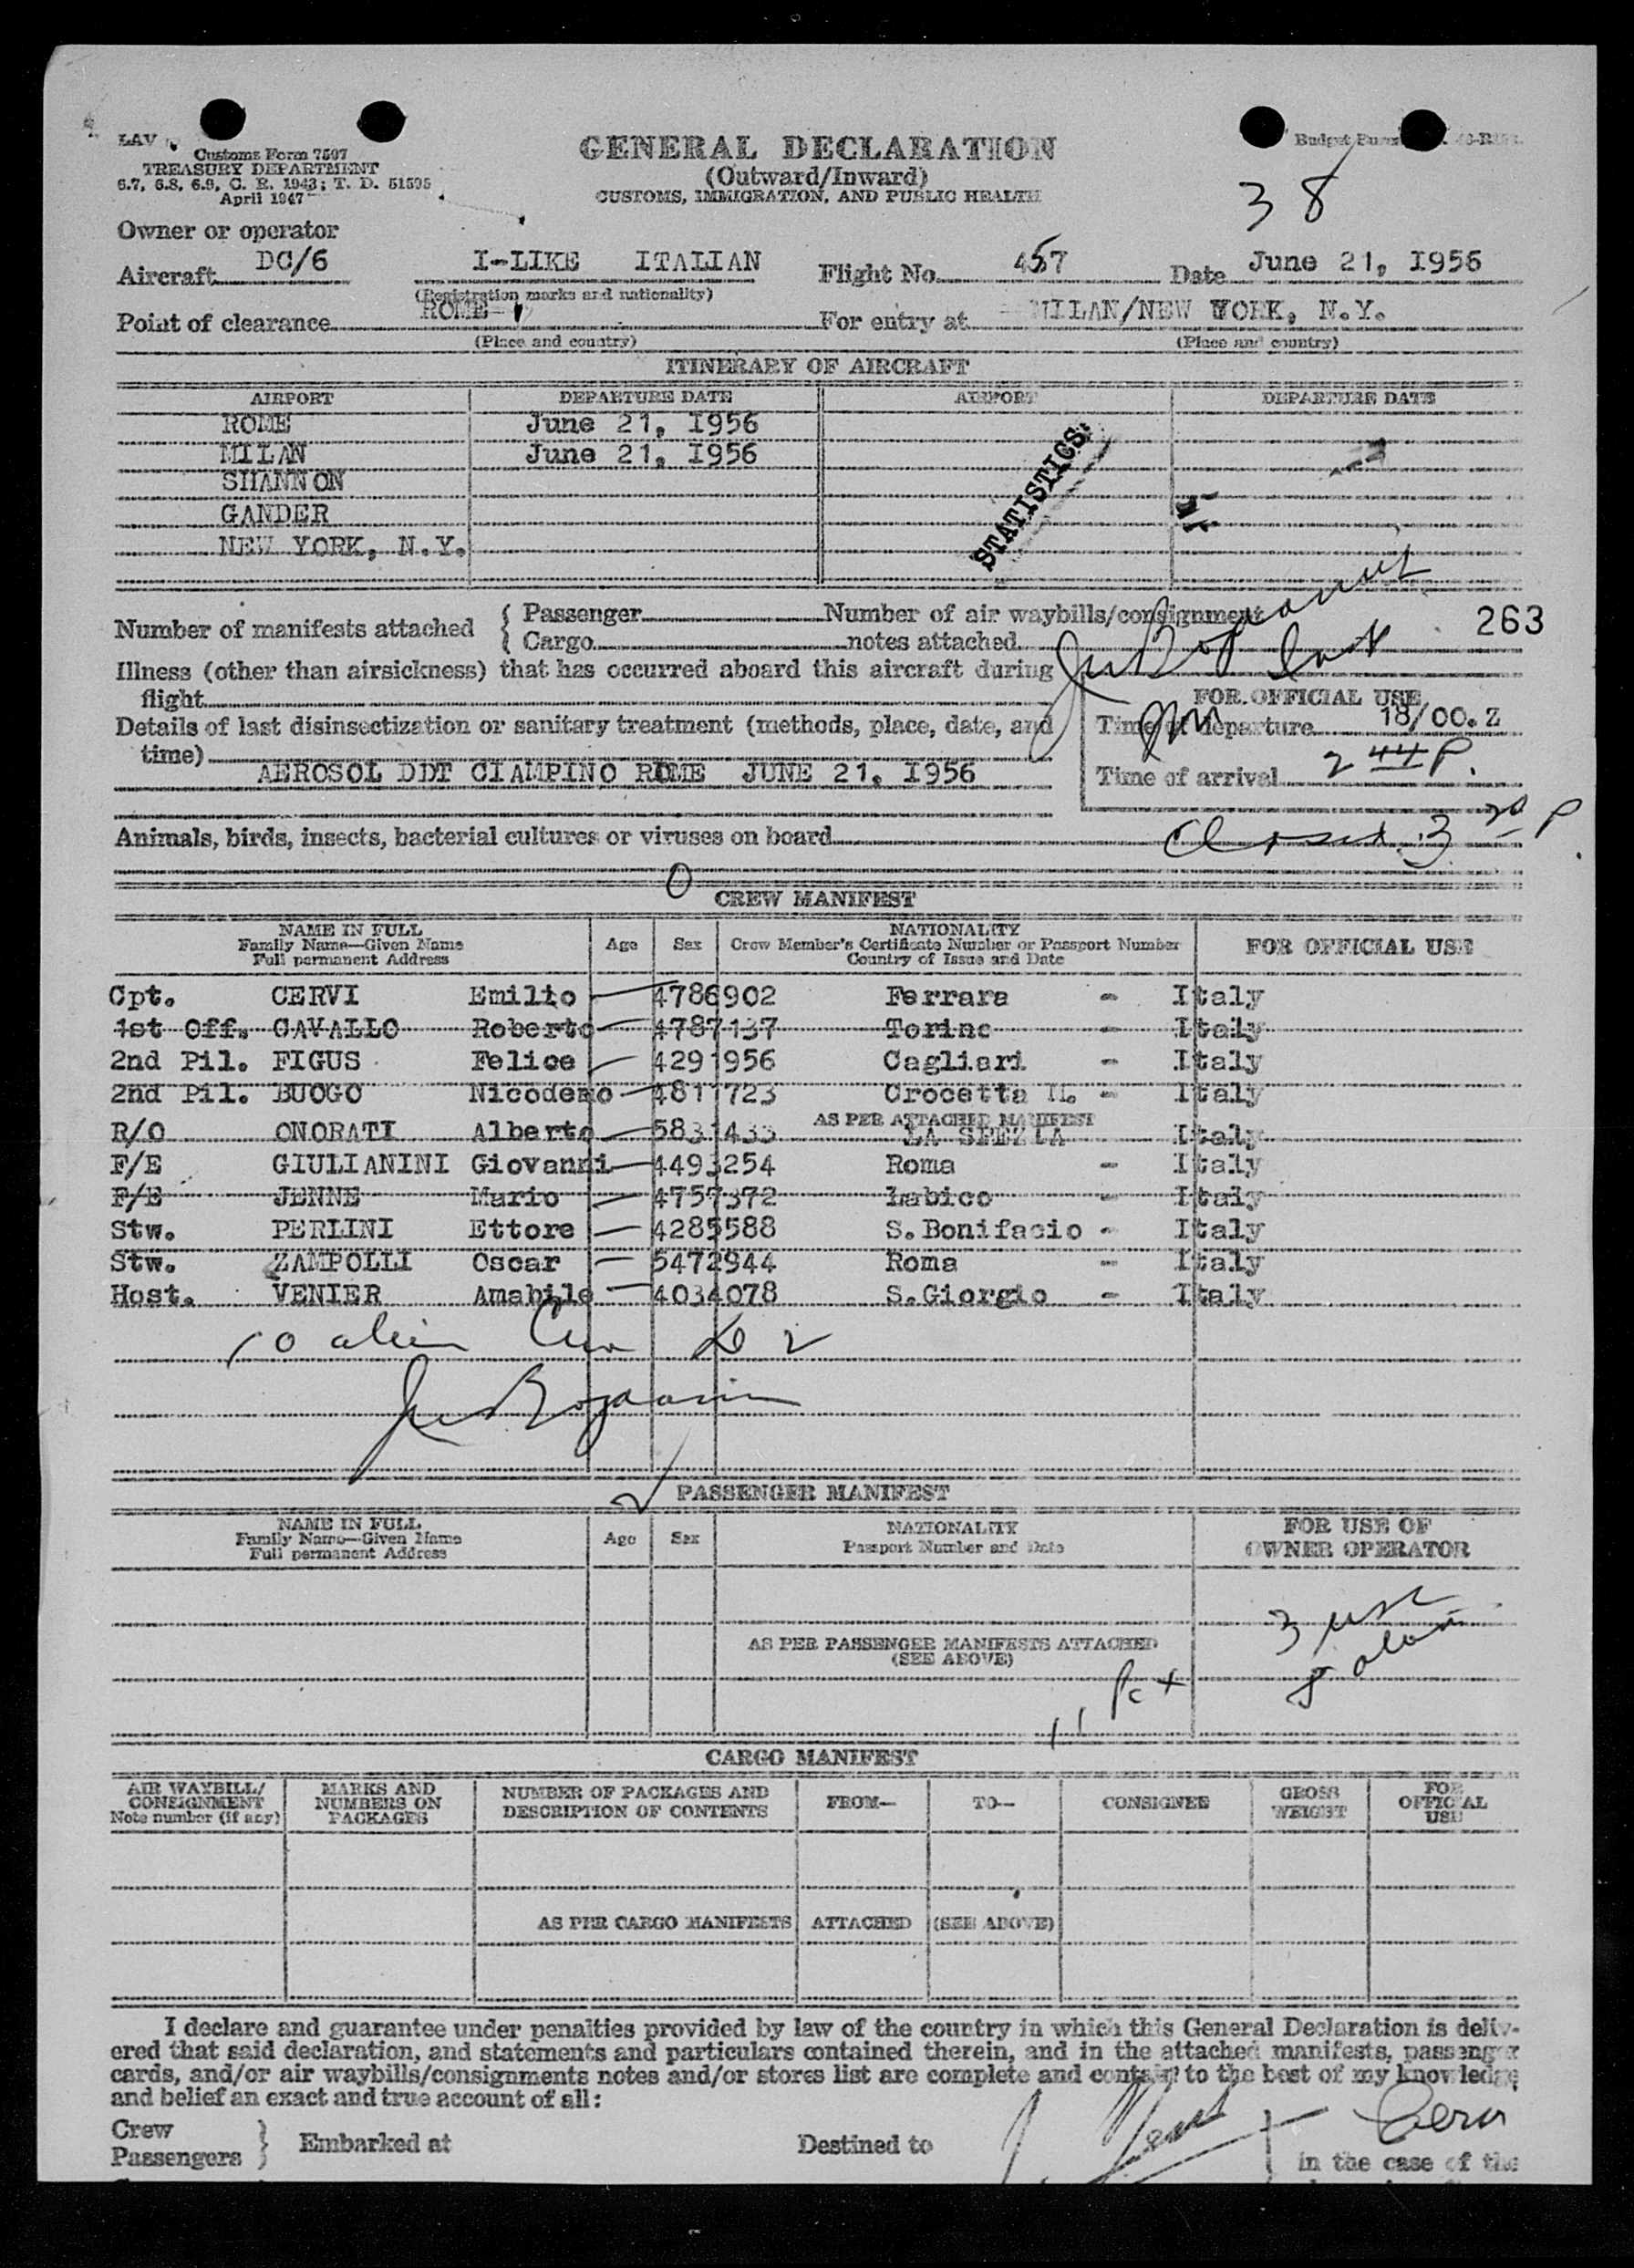 LAV
Customs Form 7507
TREASURY DEPARTMENT
6.7, 6.8, 6.9, C. R. 1943; T. D. 51595
April 1947
GENERAL DECLARATION
(Outward/Inward)
CUSTOMS, IMMIGRATION, AND PUBLIC HEALTH
Budget
38
Owner or operator
Aircraft DC/6 I-LIKE ITALIAN Flight No. 457 Date June 21, I956
(Registration marks and nationality)
Point of clearance ROME- For entry at MILAN/NEW YORK, N.Y.
(Place and country) (Place and country)
ITINERARY OF AIRCRAFT
AIRPORT DEPARTURE DATE AIRPORT DEPARTURE DATE
ROME June 21, I956
MILAN June 21, I956
SHANNON
GANDER
NEW YORK, N.Y.
STATISTICS
Number of manifests attached { Passenger Cargo Number of air waybills/consignment notes attached
263
Illness (other than airsickness) that has occurred aboard this aircraft during
flight
FOR OFFICIAL USE
Details of last disinsectization or sanitary treatment (methods, place, date, and
time)
Time of departure 18/00.Z
AEROSOL DDT CIAMPINO ROME JUNE 21, I956
Time of arrival 2 44 P.
Animals, birds, insects, bacterial cultures or viruses on board
0
3 20 P
CREW MANIFEST
NAME IN FULL
Family Name—Given Name
Full permanent Address
Age Sex
NATIONALITY
Crew Member's Certificate Number or Passport Number
Country of Issue and Date
FOR OFFICIAL USE
Cpt. CERVI Emilio 4786902 Ferrara - Italy
1st Off. CAVALLO Roberto 4787137 Torino - Italy
2nd Pil. FIGUS Felice 4291956 Cagliari - Italy
2nd Pil. BUOGO Nicodemo 4811723 Crocetta M. - Italy
AS PER ATTACHED MANIFEST
R/O ONORATI Alberto 5831433 LA SPEZIA Italy
F/E GIULIANINI Giovanni 4493254 Roma - Italy
F/E JENNE Mario 4757372 Labico - Italy
Stw. PERLINI Ettore 4285588 S.Bonifacio - Italy
Stw. ZAMPOLLI Oscar 5472944 Roma - Italy
Host. VENIER Amabile 4034078 S.Giorgio - Italy
10 alien Crew D 2
PASSENGER MANIFEST
NAME IN FULL
Family Name—Given Name
Full permanent Address
Age Sex
NATIONALITY
Passport Number and Date
FOR USE OF
OWNER OPERATOR
3 usc
8 alien
AS PER PASSENGER MANIFESTS ATTACHED
(SEE ABOVE)
11 Pax
CARGO MANIFEST
AIR WAYBILL/
CONSIGNMENT
Note number (if any)
MARKS AND
NUMBERS ON
PACKAGES
NUMBER OF PACKAGES AND
DESCRIPTION OF CONTENTS
FROM—
TO—
CONSIGNEE
GROSS
WEIGHT
FOR
OFFICIAL
USE
AS PER CARGO MANIFESTS ATTACHED (SEE ABOVE)
I declare and guarantee under penalties provided by law of the country in which this General Declaration is deliv-
ered that said declaration, and statements and particulars contained therein, and in the attached manifests, passenger
cards, and/or air waybills/consignments notes and/or stores list are complete and contain to the best of my knowledge
and belief an exact and true account of all:
Crew
Passengers } Embarked at Destined to
in the case of the